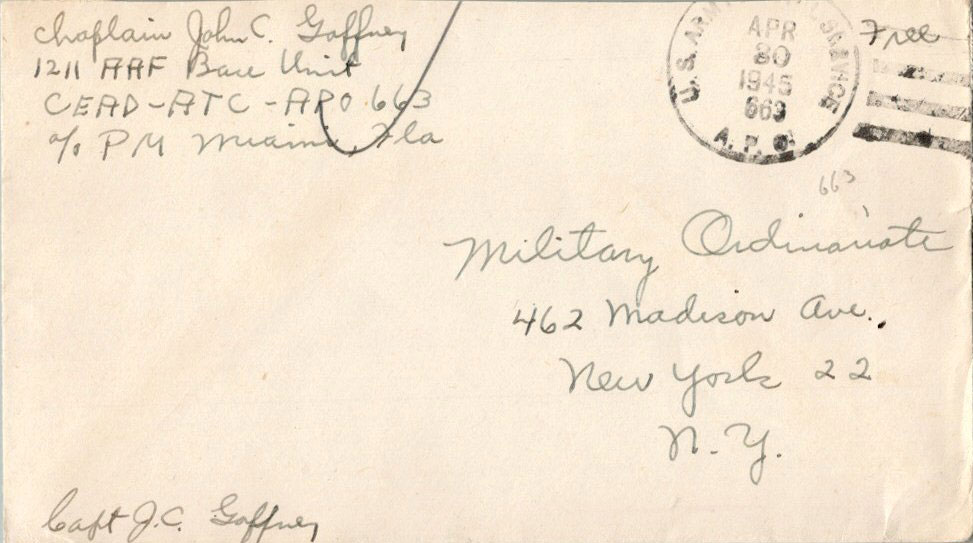 Chaplain John C. Gaffney
1211 AAF Base Unit
CEAD-ATC-APO 663
c/o PM Miami, Fla
U.S. ARMY POSTAL SERVICE
APR
30
1945
663
A.P.O.
Free
663
Military Ordinariate
462 Madison Ave.
New York 22
N.Y.
Capt J.C. Gaffney